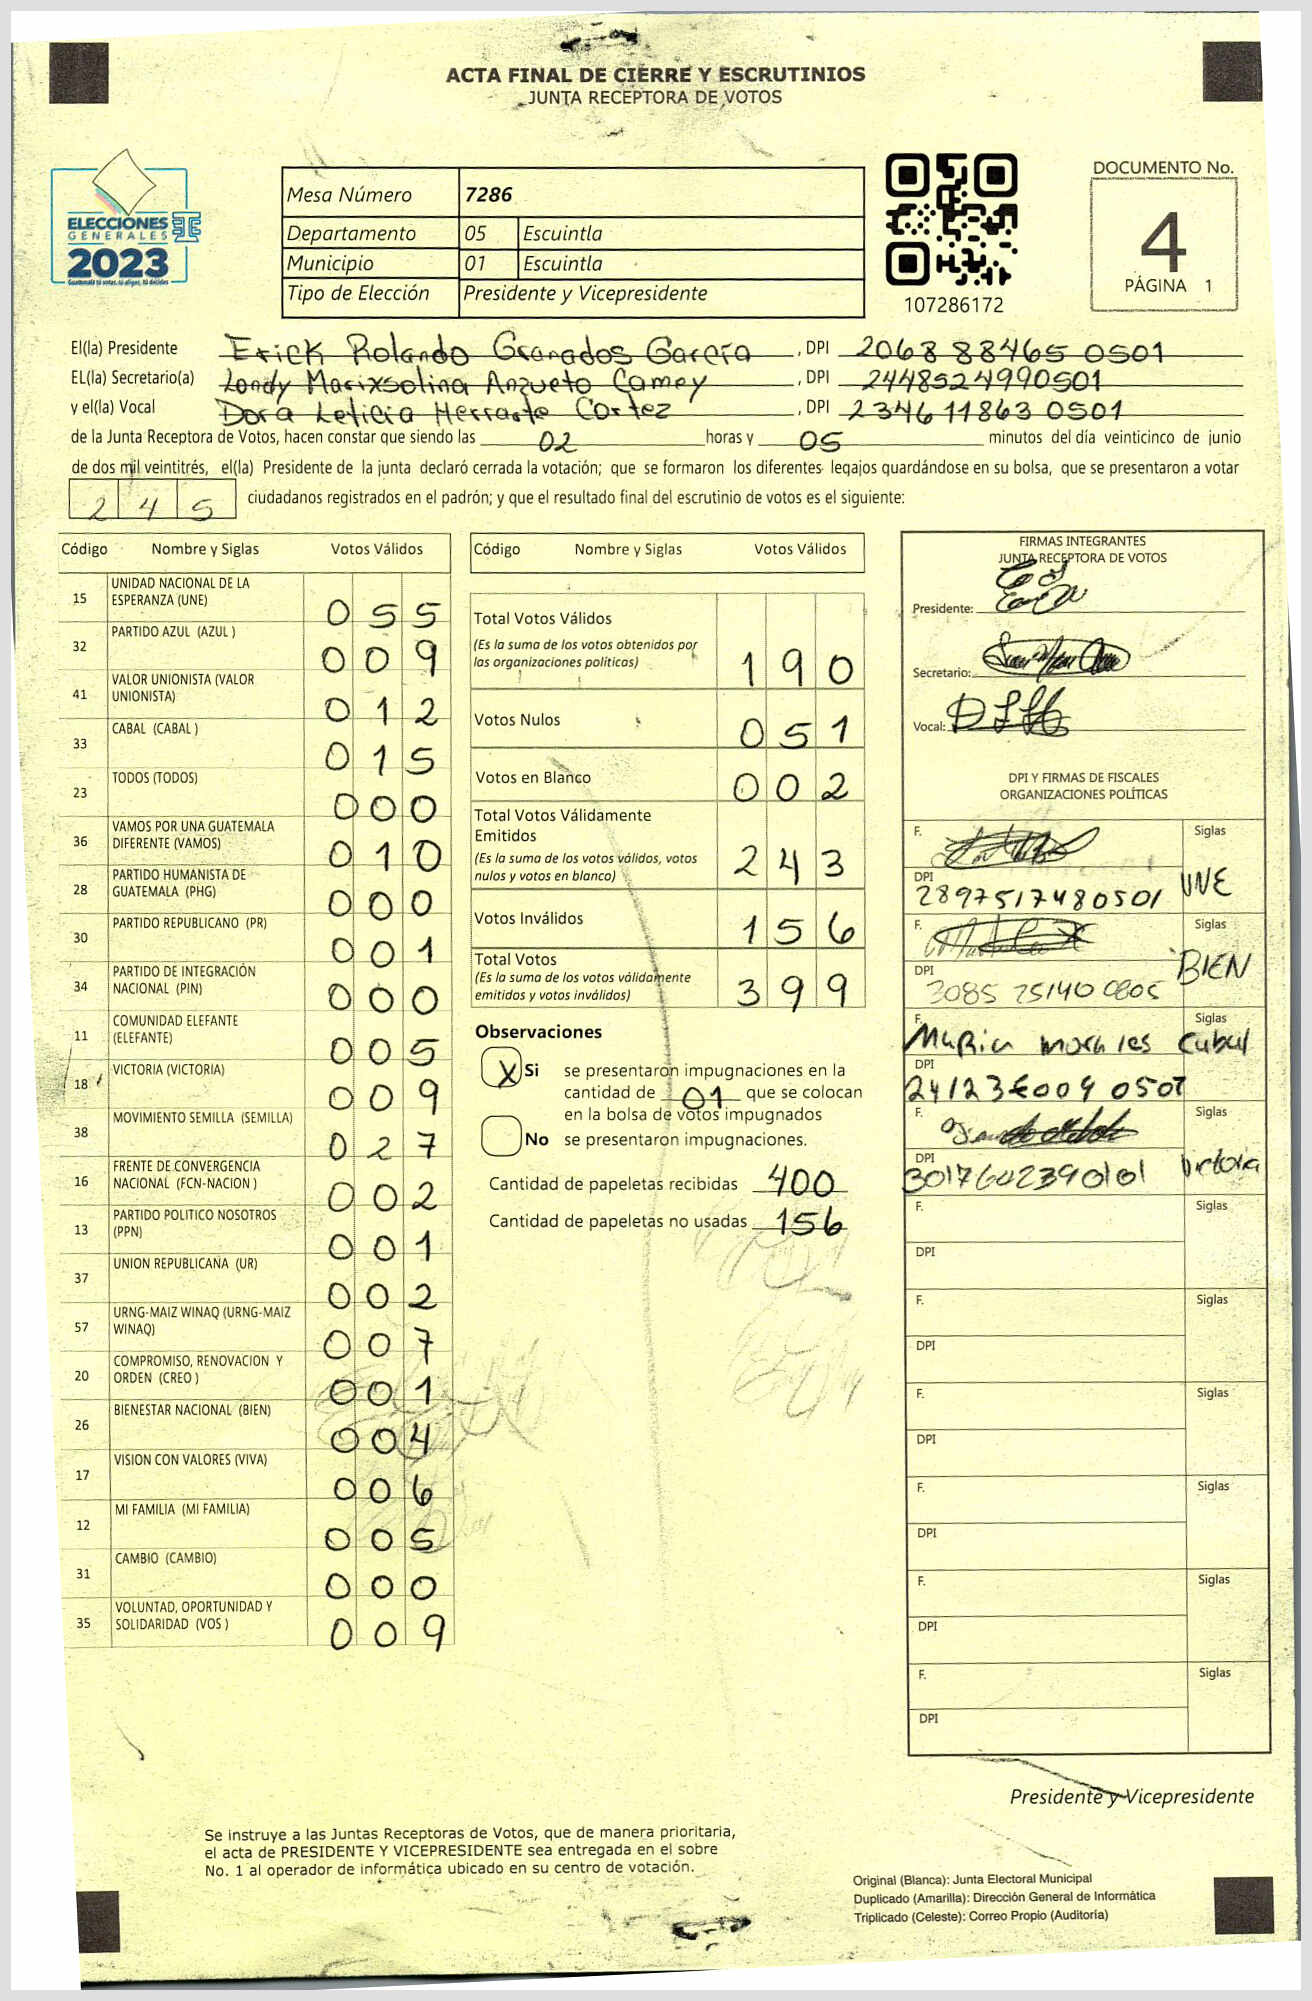 ACTA FINAL DE CIERRE Y ESCRUTINIOS
JUNTA RECEPTORA DE VOTOS
ELECCIONES
GENERALES
2023
Mesa Número 7286
Departamento 05 Escuintla
Municipio 01 Escuintla
Tipo de Elección Presidente y Vicepresidente
107286172
DOCUMENTO No.
4
PÁGINA 1
El(la) Presidente Erick Rolando Granados García , DPI 2068 88465 0501
EL(la) Secretario(a) Londy Marixsolina Anzueto Camey , DPI 2448524990501
y el(la) Vocal Dora Leticia Herrarte Cortez , DPI 2346 11863 0501
de la Junta Receptora de Votos, hacen constar que siendo las 02 horas y 05 minutos del día veinticinco de junio
de dos mil veintitrés, el(la) Presidente de la junta declaró cerrada la votación; que se formaron los diferentes legajos guardándose en su bolsa, que se presentaron a votar
245 ciudadanos registrados en el padrón; y que el resultado final del escrutinio de votos es el siguiente:
Código Nombre y Siglas Votos Válidos
15 UNIDAD NACIONAL DE LA ESPERANZA (UNE) 055
32 PARTIDO AZUL (AZUL ) 009
41 VALOR UNIONISTA (VALOR UNIONISTA) 012
33 CABAL (CABAL ) 015
23 TODOS (TODOS) 000
36 VAMOS POR UNA GUATEMALA DIFERENTE (VAMOS) 010
28 PARTIDO HUMANISTA DE GUATEMALA (PHG) 000
30 PARTIDO REPUBLICANO (PR) 001
34 PARTIDO DE INTEGRACIÓN NACIONAL (PIN) 000
11 COMUNIDAD ELEFANTE (ELEFANTE) 005
18 VICTORIA (VICTORIA) 009
38 MOVIMIENTO SEMILLA (SEMILLA) 027
16 FRENTE DE CONVERGENCIA NACIONAL (FCN-NACION ) 002
13 PARTIDO POLITICO NOSOTROS (PPN) 001
37 UNION REPUBLICANA (UR) 002
57 URNG-MAIZ WINAQ (URNG-MAIZ WINAQ) 007
20 COMPROMISO, RENOVACION Y ORDEN (CREO ) 001
26 BIENESTAR NACIONAL (BIEN) 004
17 VISION CON VALORES (VIVA) 006
12 MI FAMILIA (MI FAMILIA) 005
31 CAMBIO (CAMBIO) 000
35 VOLUNTAD, OPORTUNIDAD Y SOLIDARIDAD (VOS ) 009
Código Nombre y Siglas Votos Válidos
Total Votos Válidos
(Es la suma de los votos obtenidos por
las organizaciones políticas) 190
Votos Nulos 051
Votos en Blanco 002
Total Votos Válidamente
Emitidos
(Es la suma de los votos válidos, votos
nulos y votos en blanco) 243
Votos Inválidos 156
Total Votos
(Es la suma de los votos válidamente
emitidos y votos inválidos) 399
Observaciones
X Si se presentaron impugnaciones en la
cantidad de 01 que se colocan
en la bolsa de votos impugnados
No se presentaron impugnaciones.
Cantidad de papeletas recibidas 400
Cantidad de papeletas no usadas 156
FIRMAS INTEGRANTES
JUNTA RECEPTORA DE VOTOS
Presidente:
Secretario:
Vocal:
DPI Y FIRMAS DE FISCALES
ORGANIZACIONES POLÍTICAS
F. Siglas
DPI 2897517480501 UNE
F. Siglas
DPI 3085 25140 0805 BIEN
F. Maria morales Siglas Cabal
DPI
F. Siglas
DPI 3017602390101 Victoria
F. Siglas
DPI
F. Siglas
DPI
F. Siglas
DPI
F. Siglas
DPI
F. Siglas
DPI
F. Siglas
DPI
Presidente y Vicepresidente
Se instruye a las Juntas Receptoras de Votos, que de manera prioritaria,
el acta de PRESIDENTE Y VICEPRESIDENTE sea entregada en el sobre
No. 1 al operador de informática ubicado en su centro de votación.
Original (Blanca): Junta Electoral Municipal
Duplicado (Amarilla): Dirección General de Informática
Triplicado (Celeste): Correo Propio (Auditoría)